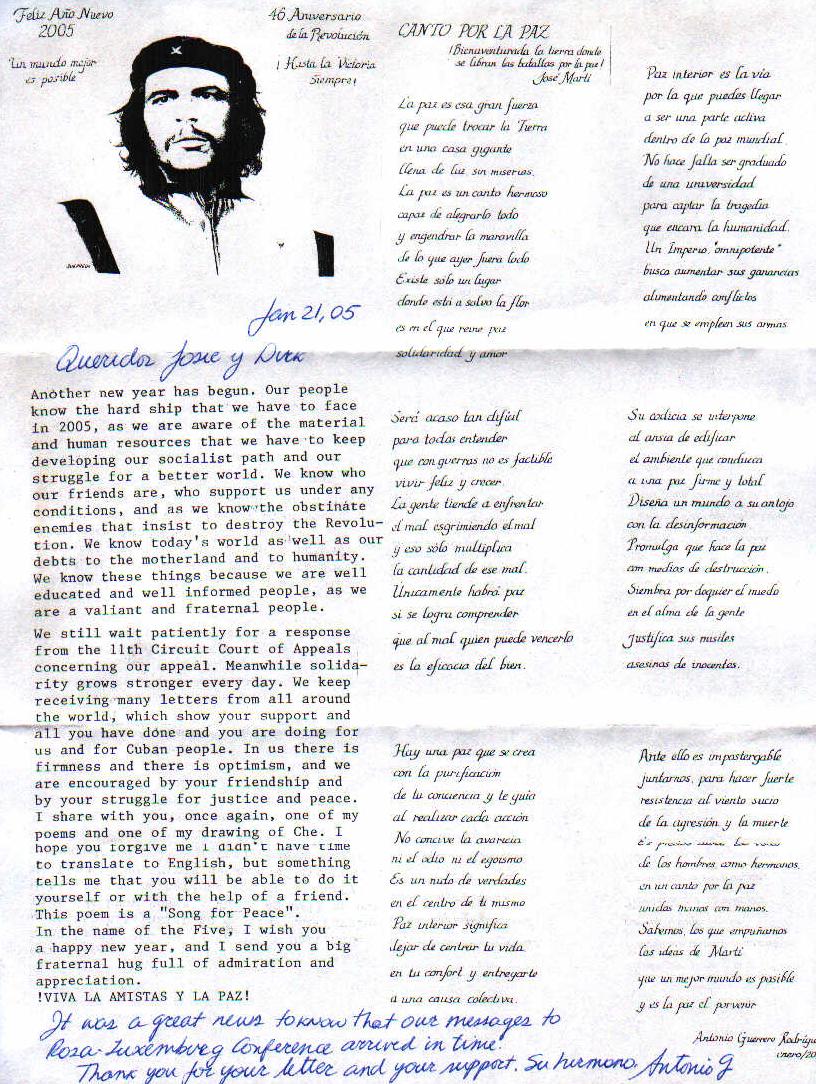 Feliz Año Nuevo
2005
Un mundo mejor
es posible
46 Aniversario
de la Revolución
¡Hasta la Victoria
Siempre!
Jan 21, 05
Queridos Josie y Dirk
Another new year has begun. Our people
know the hard ship that we have to face
in 2005, as we are aware of the material
and human resources that we have to keep
developing our socialist path and our
struggle for a better world. We know who
our friends are, who support us under any
conditions, and as we know the obstinate
enemies that insist to destroy the Revolu-
tion. We know today's world as well as our
debts to the motherland and to humanity.
We know these things because we are well
educated and well informed people, as we
are a valiant and fraternal people.
We still wait patiently for a response
from the 11th Circuit Court of Appeals
concerning our appeal. Meanwhile solida-
rity grows stronger every day. We keep
receiving many letters from all around
the world, which show your support and
all you have done and you are doing for
us and for Cuban people. In us there is
firmness and there is optimism, and we
are encouraged by your friendship and
by your struggle for justice and peace.
I share with you, once again, one of my
poems and one of my drawing of Che. I
hope you forgive me I didn't have time
to translate to English, but something
tells me that you will be able to do it
yourself or with the help of a friend.
This poem is a "Song for Peace".
In the name of the Five, I wish you
a happy new year, and I send you a big
fraternal hug full of admiration and
appreciation.
!VIVA LA AMISTAS Y LA PAZ!
It was a great news to know that our messages to
Rosa-Luxemburg Conference arrived in time!
Thank you for your letter and your support. Su hermano, Antonio G
CANTO POR LA PAZ
¡Bienaventurada la tierra donde
se libran las batallas por la paz!
José Martí
La paz es esa gran fuerza
que puede trocar la Tierra
en una casa gigante
llena de luz sin miserias.
La paz es un canto hermoso
capaz de alegrarlo todo
y engendrar la maravilla
de lo que ayer fuera lodo
Existe sólo un lugar
donde está a salvo la flor
es en el que reine paz
solidaridad y amor
Será acaso tan difícil
para todos entender
que con guerras no es factible
vivir feliz y crecer.
La gente tiende a enfrentar
el mal esgrimiendo el mal
y eso sólo multiplica
la cantidad de ese mal.
Unicamente habrá paz
si se logra comprender
que al mal quien puede vencerlo
es la eficacia del bien.
Hay una paz que se crea
con la purificación
de tu conciencia y te guía
al realizar cada acción
No concive la avaricia
ni el odio ni el egoísmo
Es un nudo de verdades
en el centro de ti mismo
Paz interior significa
dejar de centrar tu vida
en tu confort y entregarte
a una causa colectiva.
Paz interior es la vía
por la que puedes llegar
a ser una parte activa
dentro de la paz mundial.
No hace falta ser graduado
de una universidad
para captar la tragedia
que encara la humanidad.
Un Imperio, "omnipotente"
busca aumentar sus ganancias
alimentando conflictos
en que se empleen sus armas
Su codicia se interpone
al ansia de edificar
el ambiente que conduzca
a una paz firme y total
Diseña un mundo a su antojo
con la desinformación
Promulga que hace la paz
con medios de destrucción.
Siembra por doquier el miedo
en el alma de la gente
Justifica sus misiles
asesinos de inocentes.
Ante ello es impostergable
juntarnos, para hacer fuerte
resistencia al viento sucio
de la agresión y la muerte
Es preciso
de los hombres, como hermanos,
en un canto por la paz
unidas manos con manos.
Sabemos, los que empuñamos
las ideas de Martí
que un mejor mundo es posible
y es la paz el porvenir
Antonio Guerrero Rodrígu
enero/20